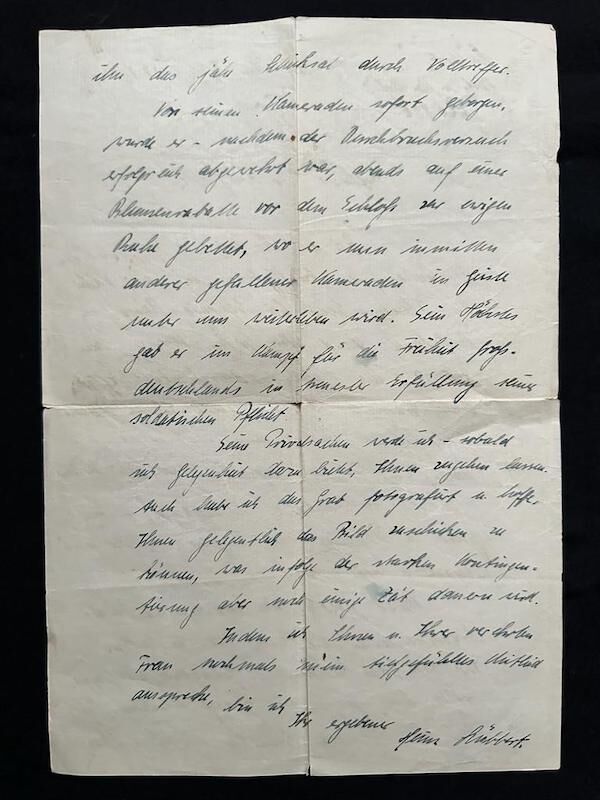 ihn das jähe Schicksal durch Volltreffer.
Von seinen Kameraden sofort geborgen,
wurde er - nachdem der Durchbruchsversuch
erfolgreich abgewehrt war, abends auf einer
Blumenrabatte vor dem Schloß zur ewigen
Ruhe gebettet, wo er nun inmitten
anderer gefallener Kameraden im Geiste
unter uns weiterleben wird. Sein Höchstes
gab er im Kampf für die Freiheit Groß-
deutschlands in treuester Erfüllung seiner
soldatischen Pflicht
Seine Privatsachen werde ich - sobald
sich Gelegenheit dazu bietet, Ihnen zugehen lassen.
Auch habe ich das Grab fotografiert u. hoffe,
Ihnen gelegentlich das Bild zuschicken zu
können, was infolge der starken Kontingen-
tierung aber noch einige Zeit dauern wird.
Indem ich Ihnen u. Ihrer verehrten
Frau nochmals mein tiefgefühltes Mitleid
ausspreche, bin ich
Ihr ergebener
Heinz